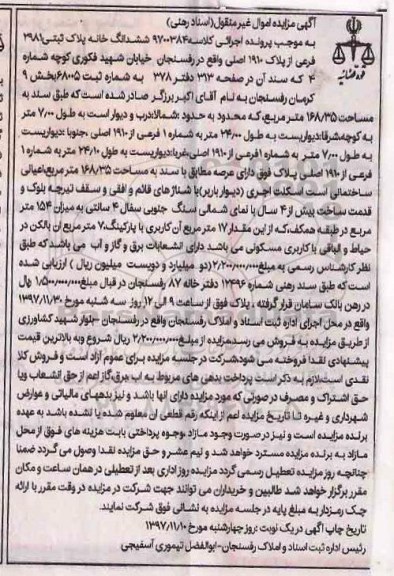 آگهی مزایده اموال غیر منقول(اسناد رهنی)
به موجب پرونده اجرائی کلاسه ۹۷۰۰۳۸۴ ششدانگ خانه پلاک ثبتی ۳۹۸۱
فرعی از پلاک ۱۹۱۰ اصلی واقع در رفسنجان خیابان شهید فکوری کوچه شماره
۴ که سند آن در صفحه ۳۱۳ دفتر ۳۷۸ به شماره ثبت ۶۸۰۰۵بخش ۹
کرمان رفسنجان به نام آقای اکبر برزگر صادر شده است که طبق سند به
مساحت ۱۶۸/۳۵ متر مربع،که محدود به حدود :شمالا:درب و دیوار است به طول ۷/۰۰ متر
به کوچه،شرقا:دیواریست به طول ۲۴/۰۰ متر به شماره ۱ فرعی از ۱۹۱۰ اصلی ،جنوبا :دیواریست
به طول ۷/۰۰ متر به شماره ۱فرعی از ۱۹۱۰ اصلی،غربا:دیواریست به طول ۲۴/۱۰ متر به شماره ۱
فرعی از ۱۹۱۰ اصلی پلاک فوق دارای عرصه مطابق با سند به مساحت ۱۶۸/۳۵ متر مربع،اعیانی
ساختمانی است اسکلت اجری (دیوار باربر)با شناژهای قائم و افقی و سقف تیرچه بلوک و
قدمت ساخت بیش از ۴ سال با نمای شمالی سنگ جنوبی سفال ۴ سانتی به میزان ۱۵۴ متر
مربع در طبقه همکف،که از این مقدار ۱۷ متر مربع آن کاربری با پارکینگ،۷ متر مربع آن بالکن در
حیاط و الباقی با کاربری مسکونی می باشد دارای انشعابات برق و گاز و آب می باشد که طبق
نظر کارشناس رسمی به مبلغ۲/۲۰۰/۰۰۰/۰۰۰(دو میلیارد و دویست میلیون ریال ) ارزیابی شده
است که طبق سند رهنی شماره ۱۲۴۹۶ دفتر خانه ۸۷ رفسنجان در قبال مبلغ۱/۵۰۰/۰۰۰/۰۰۰ ریال
در رهن بانک سامان قرار گرفته ، پلاک فوق از ساعت ۹ الی ۱۲ روز سه شنبه مورخ ۱۳۹۷/۱۱/۳۰
واقع در محل اجرای اداره ثبت اسناد و املاک رفسنجان واقع در رفسنجان -بلوار شهید کشاورزی
از طریق مزایده به فروش می رسد.مزایده از مبلغ۲/۲۰۰/۰۰۰/۰۰۰ ریال شروع وبه بالاترین قیمت
پیشنهادی نقدا فروخته می شود.شرکت در جلسه مزایده برای عموم آزاد است و فروش کلا
نقدی است.لازم به ذکر است پرداخت بدهی های مربوط به اب،برق،گاز اعم از حق انشعاب ویا
حق اشتراک و مصرف در صورتی که مورد مزایده دارای انها باشد و نیز بدهیهای مالیاتی و عوارض
شهرداری و غیره تا تاریخ مزایده اعم از اینکه رقم قطعی ان معلوم شده یا نشده باشد به عهده
برنده مزایده است و نیز در صورت وجود مازاد ،وجوه پرداختی بابت هزینه های فوق از محل
مازاد به برنده مزایده مسترد خواهد شد و نیم عشر و حق مزایده نقدا وصول می گردد ضمنا
چنانچه روز مزایده تعطیل رسمی گردد مزایده روز اداری بعد از تعطیلی در همان ساعت و مکان
مقرر برگزار خواهد شد طالبین و خریداران می توانند جهت شرکت در مزایده در وقت مقرر با ارائه
چک رمزدار به مبلغ پایه در جلسه مزایده به نشانی فوق شرکت نمایند.
تاریخ چاپ آگهی در یک نوبت: روز چهارشنبه مورخ ۱۳۹۷/۱۱/۱۰
رئیس اداره ثبت اسناد و املاک رفسنجان-ابوالفضل تیموری آسفیچی